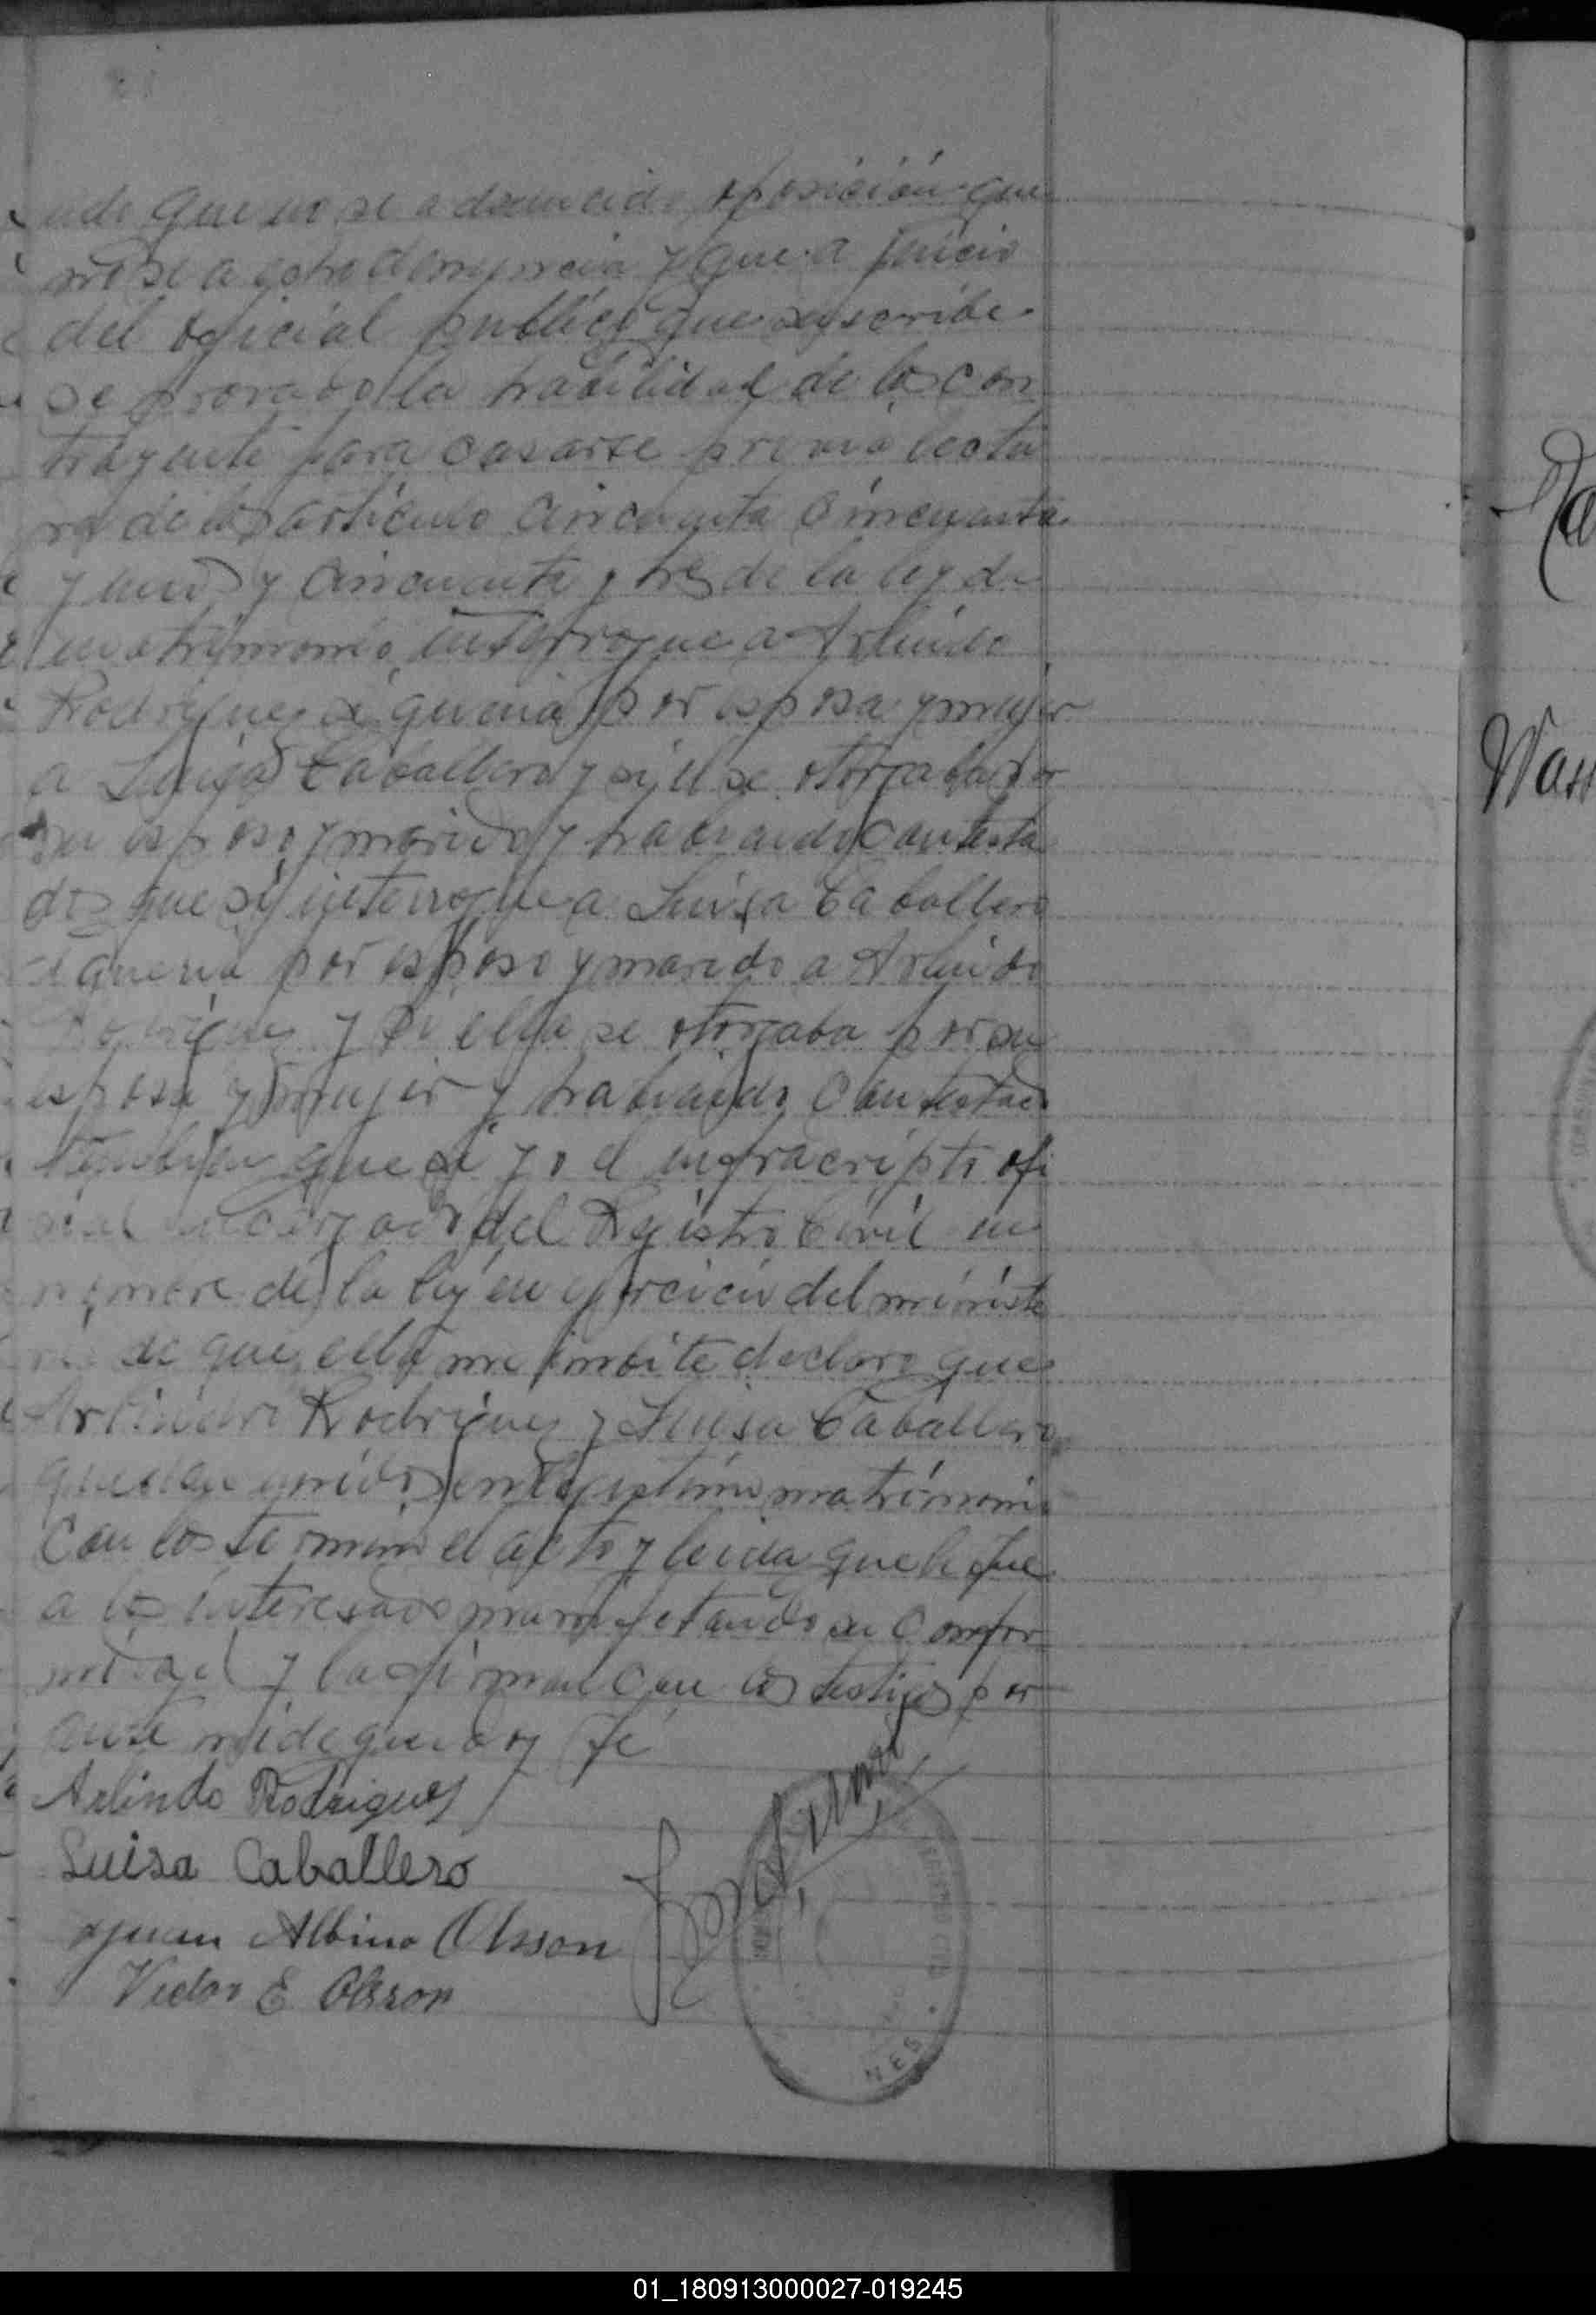 que no se a denunciado oposición que
no se a echo denuncia y que a juicio
del oficial publico que suscribe
se provado la habilidad de los con
trayente para casarse previa lectu
ra de los articulo cincuenta cincuenta
y uno y cincuenta y tres de la ley de
matrimonio interrogue a Arlindo
Rodriguez si queria por esposa y mujer
a Luisa Caballero y si el se otorgaba por
su esposo y marido y habiendo contesta
do que si interrogue a Luisa Caballero
si queria por esposo y marido a Arlindo
Rodriguez y si ella se otorgaba por su
esposa y mujer y habiendo contestado
tambien que si yo el infracripto ofi
cial encargado del Registro Civil en
nombre de la ley en ejercicio del ministe
rio de que ella me imbite declaro que
Arlindo Rodriguez y Luisa Caballero
quedan unidos en legitimo matrimonio
Con los termino el acto y leida que le fue
a los interesado manifestando su confor
midad y la firman con los testigos por
ante mi de que doy fe
Arlindo Rodriguez
Luisa Caballero
Juan Albino Olsson
Victor E Olsson
REGISTRO CIVIL
Wass
01_180913000027-019245